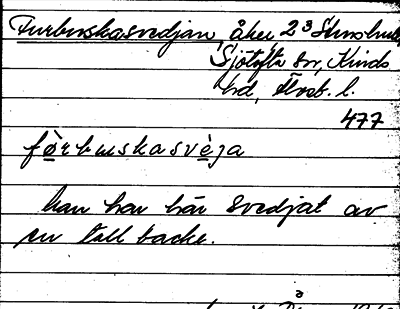 Furbuskasvedjan, åker 2³
Sjötofta sn, Kinds
hd, Älvsb. l.
477
fòrbuskasvèja
han har här svedjat av
en tall backe.